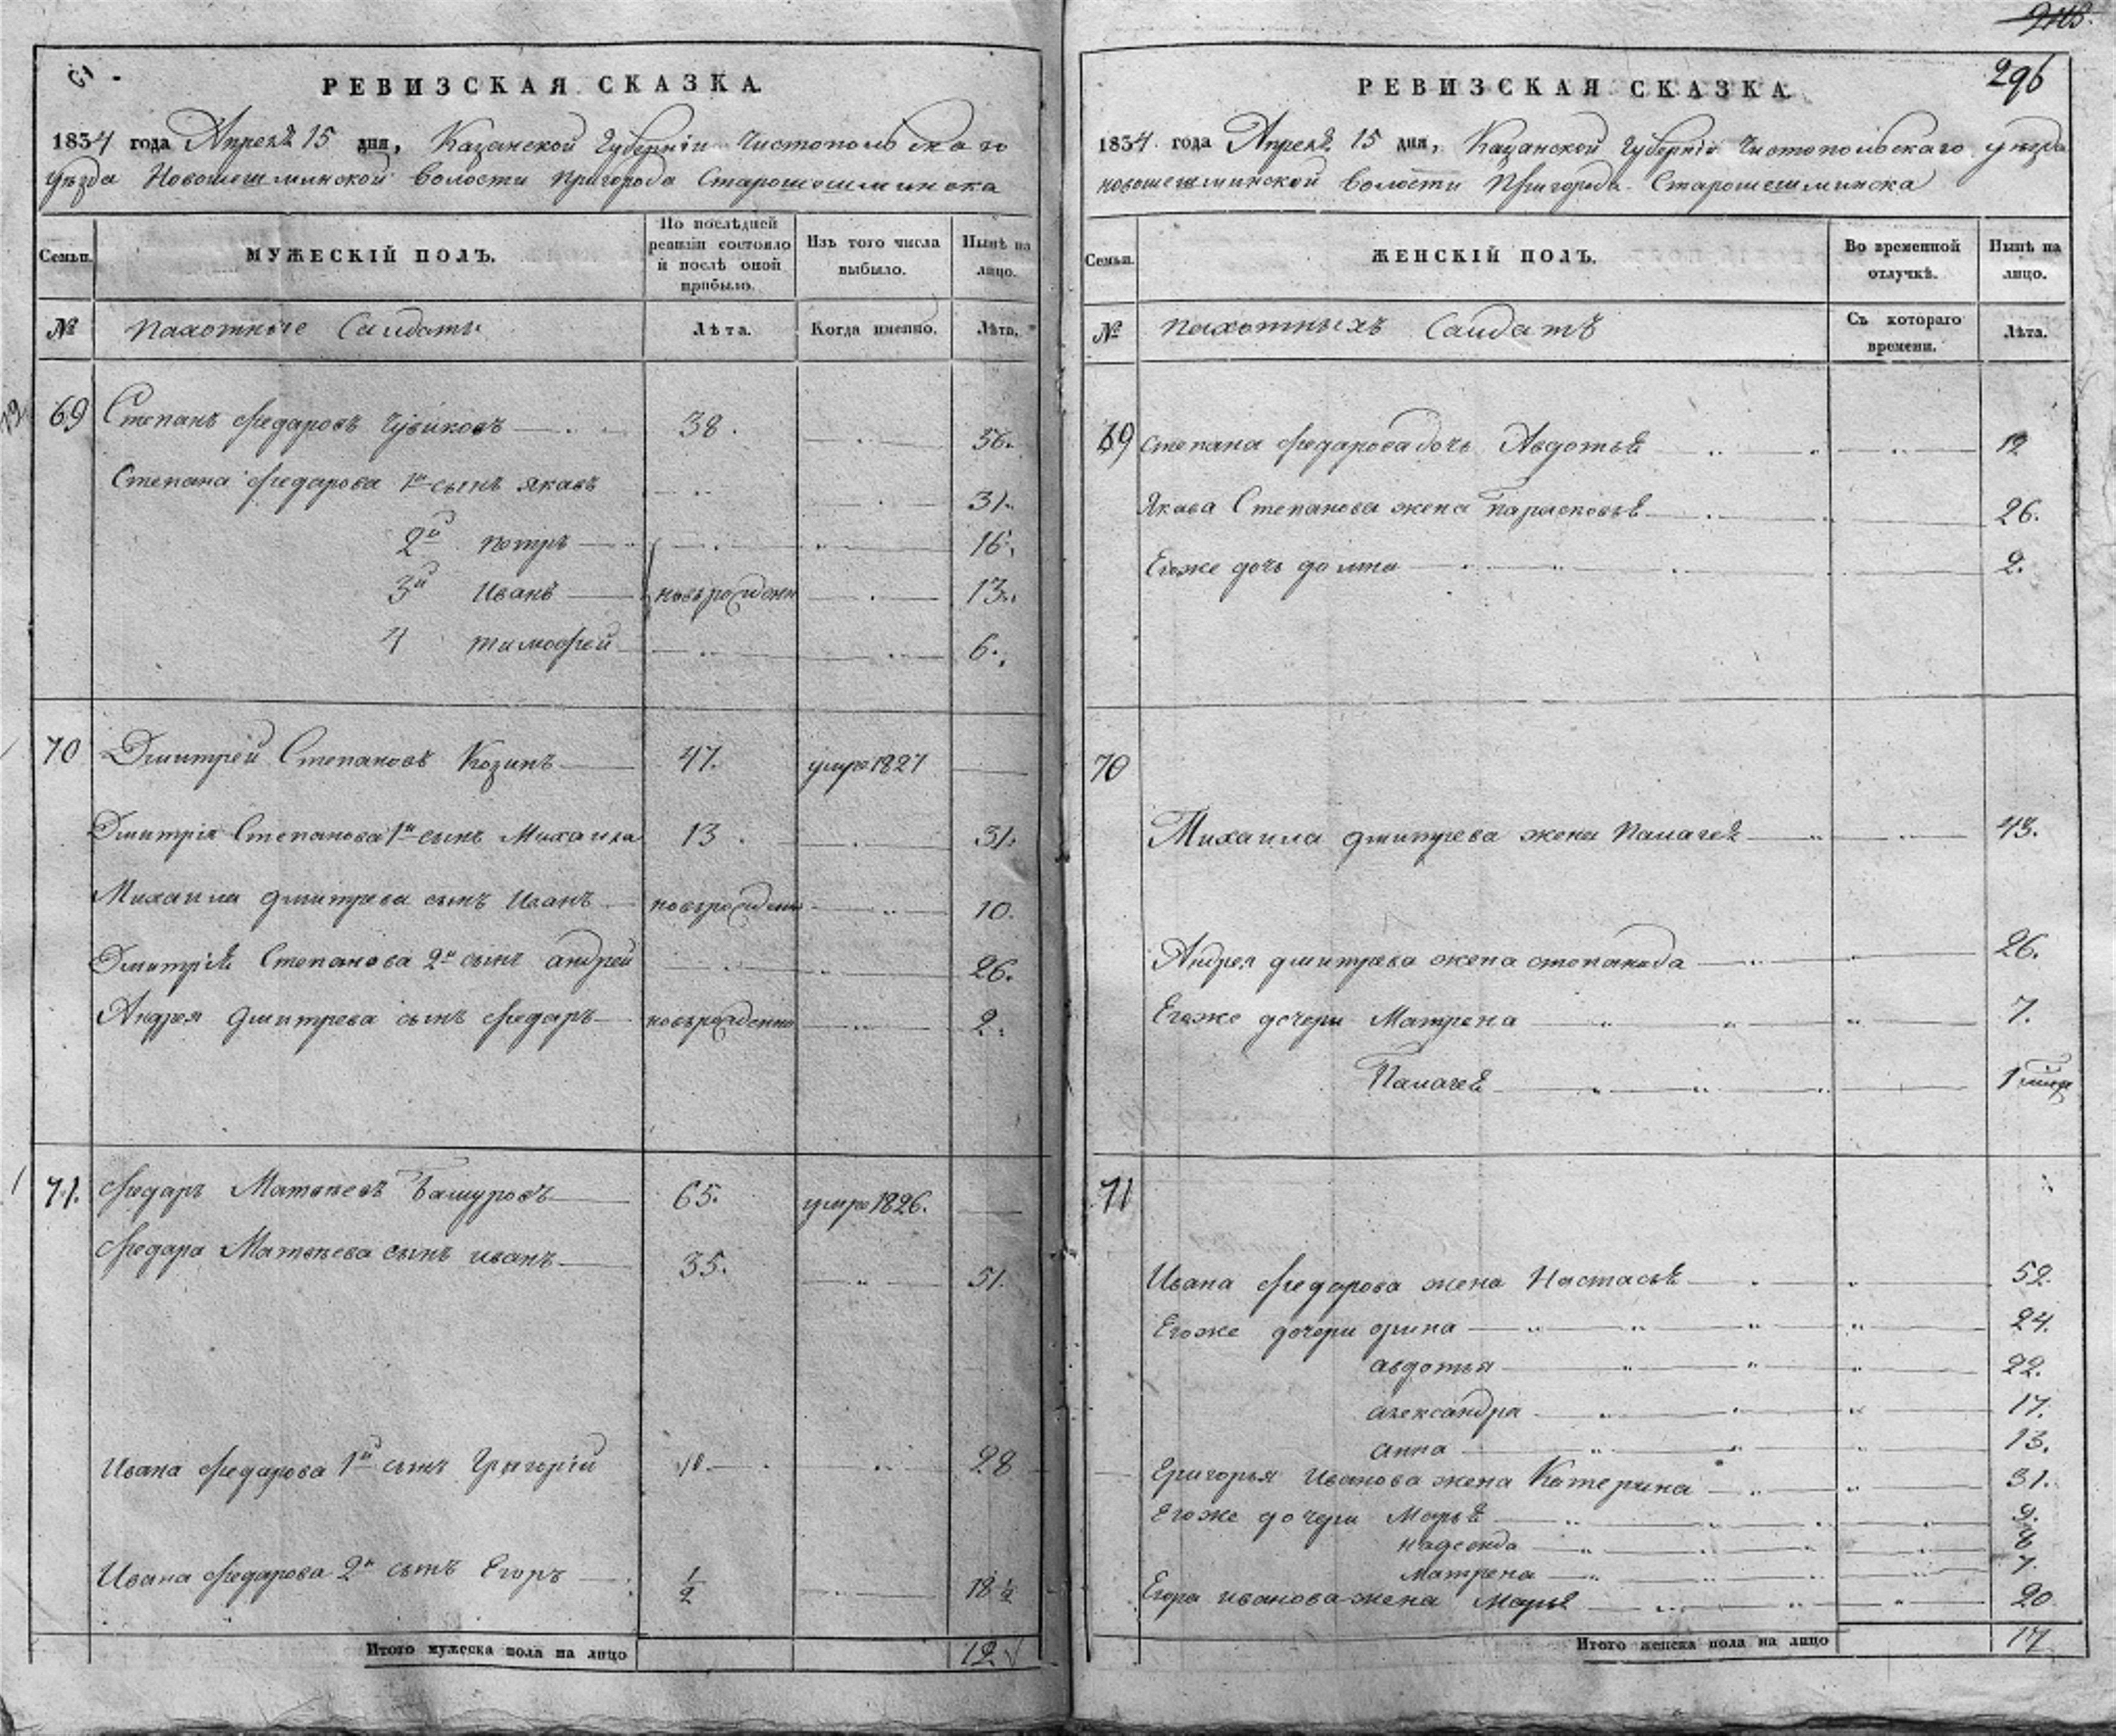 РЕВИЗСКАЯ СКАЗКА.
1834 года Апреля 15 дня, Казанской Губерніи Чистопольскаго
уѣзда Новошешминской волости пригорода Старошешминска
Семьи.
МУЖЕСКІЙ ПОЛЪ.
По послѣдней ревизіи состояло и послѣ оной прибыло.
Изъ того числа выбыло.
Нынѣ на лицо.
№ пахотные Салдаты Лѣта. Когда именно. Лѣта.
69 Степанъ федаровъ Чувиковъ 38. 56.
Степана федарова 1й сынъ якавъ 31.
2й петръ 16.
3й Иванъ новърожденны 13.
4 тимофей 6.
70 Дмитрей Степановъ Козинъ 47. умре 1827
Дмитрія Степанова 1й сынъ Михаила 13 31.
Михаила дмитрева сынъ Иванъ новърожденны 10.
Дмитріѣ Степанова 2й сынъ андрей 26.
Андрея дмитрева сынъ федаръ новърожденны 2.
71. федаръ Матвѣевъ Башуровъ 65. умре 1826.
федара Матвѣева сынъ иванъ 35. 51.
Ивана федарова 1й сынъ Григорій 10. 28
Ивана федарова 2й сынъ Егоръ 1/2 18 1/2
Итого мужеска пола на лицо 12
2118.
296
РЕВИЗСКАЯ СКАЗКА.
1834 года Апреля 15 дня, Казанской Губерніи Чистопольскаго уѣзда
новошешминской волости Пригорода Старошешминска
Семьи.
ЖЕНСКІЙ ПОЛЪ.
Во временной отлучкѣ.
Нынѣ на лицо.
№ пахотныхъ Салдатъ Съ котораго времени. Лѣта.
69 степана федарова дочь Авдотьѣ 12
Якава Степанова жена Парасковьѣ 26.
Егоже дочь домна 2.
70
Михаила дмитрева жена Палагеѣ 43.
Андрея дмитрева жена степанида 26.
Егоже дочери Матрена 7.
Палагеѣ 1
71
Ивана федарова жена Настасьѣ 52.
Егоже дочери орина 24.
авдотья 22.
александра 17.
анна 13.
Григорья Иванова жена Катерина 31.
Егоже дочери Марьѣ 9.
надежда 8
матрена 7.
Егора иванова жена Марьѣ 20
Итого женска пола на лицо 17